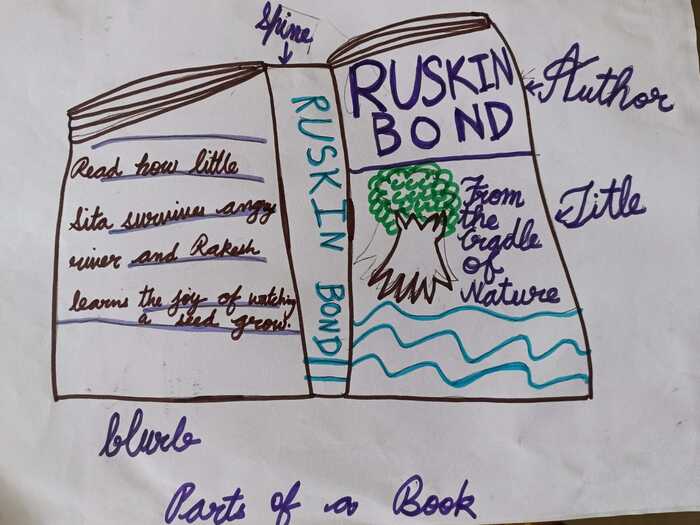 Spine
RUSKIN
BOND
Author
RUSKIN BOND
Read how little
Sita survives angry
river and Rakesh
learns the joy of watching
a seed grow.
From
the
Cradle
of
Nature
Title
blurb
Parts of a Book